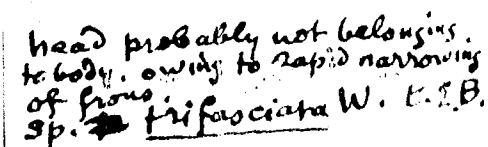 head probably not belonging
to body. owing to rapid narrowing
of frons.
sp. trifasciata W. E.E.B.